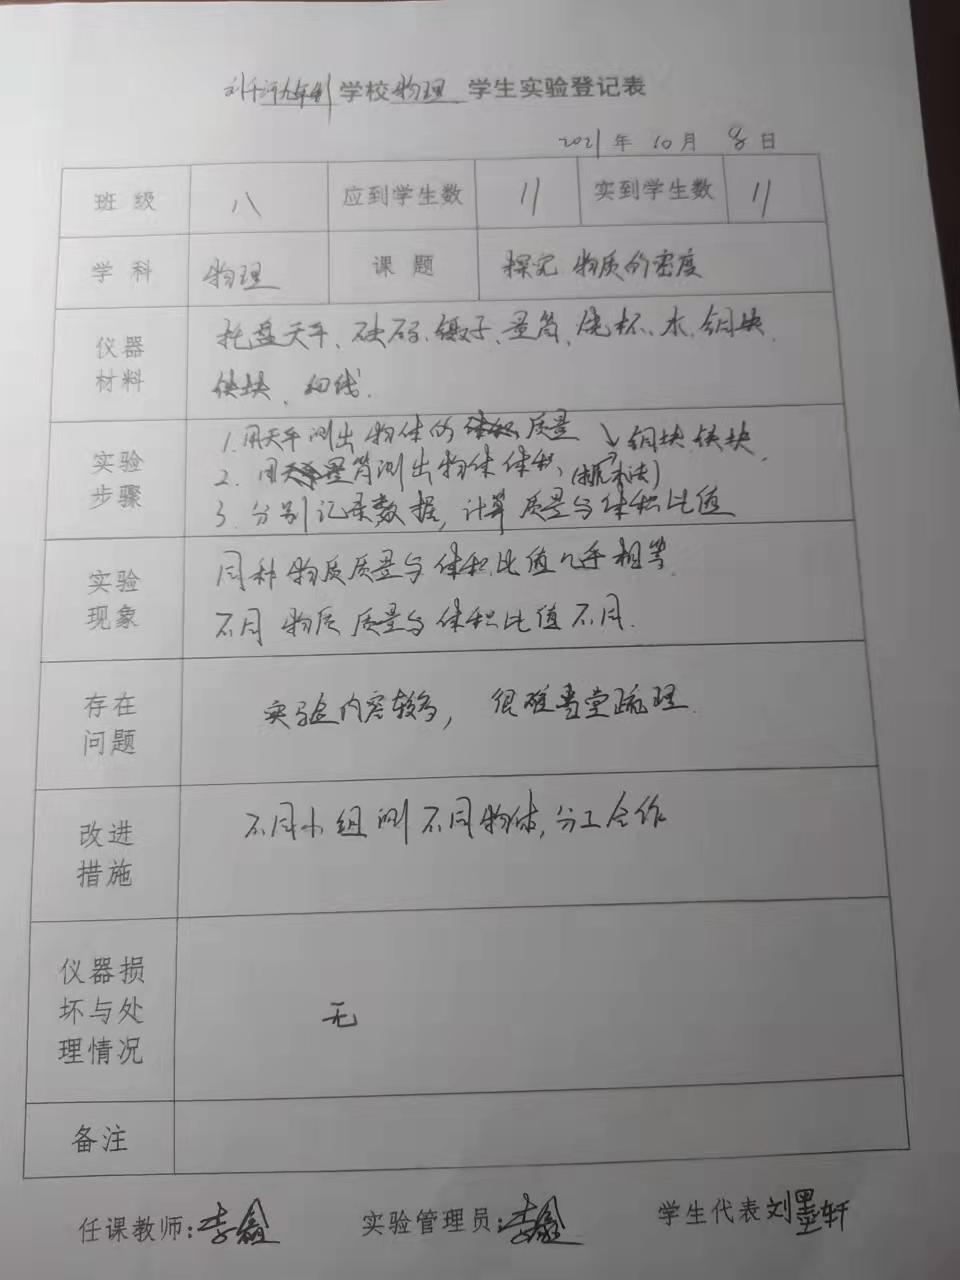 学校 物理 学生实验登记表
2021 年 10 月 8 日
班 级 八 应到学生数 11 实到学生数 11
学 科 物理 课 题 探究 物质的密度
仪器材料
托盘天平、砝码、镊子、量筒、烧杯、水、铜块、
铁块、细线.
实验步骤
1. 用天平测出物体的质量 → 铜块、铁块、
2. 用量筒测出物体体积、(排水法)
3. 分别记录数据, 计算质量与体积比值
实验现象
同种物质质量与体积比值几乎相等.
不同 物质 质量与体积比值 不同.
存在问题
实验内容较多, 很难当堂疏理.
改进措施
不同小组测不同物体, 分工合作
仪器损坏与处理情况
无
备注
任课教师: 李鑫 实验管理员: 李鑫 学生代表 刘墨轩